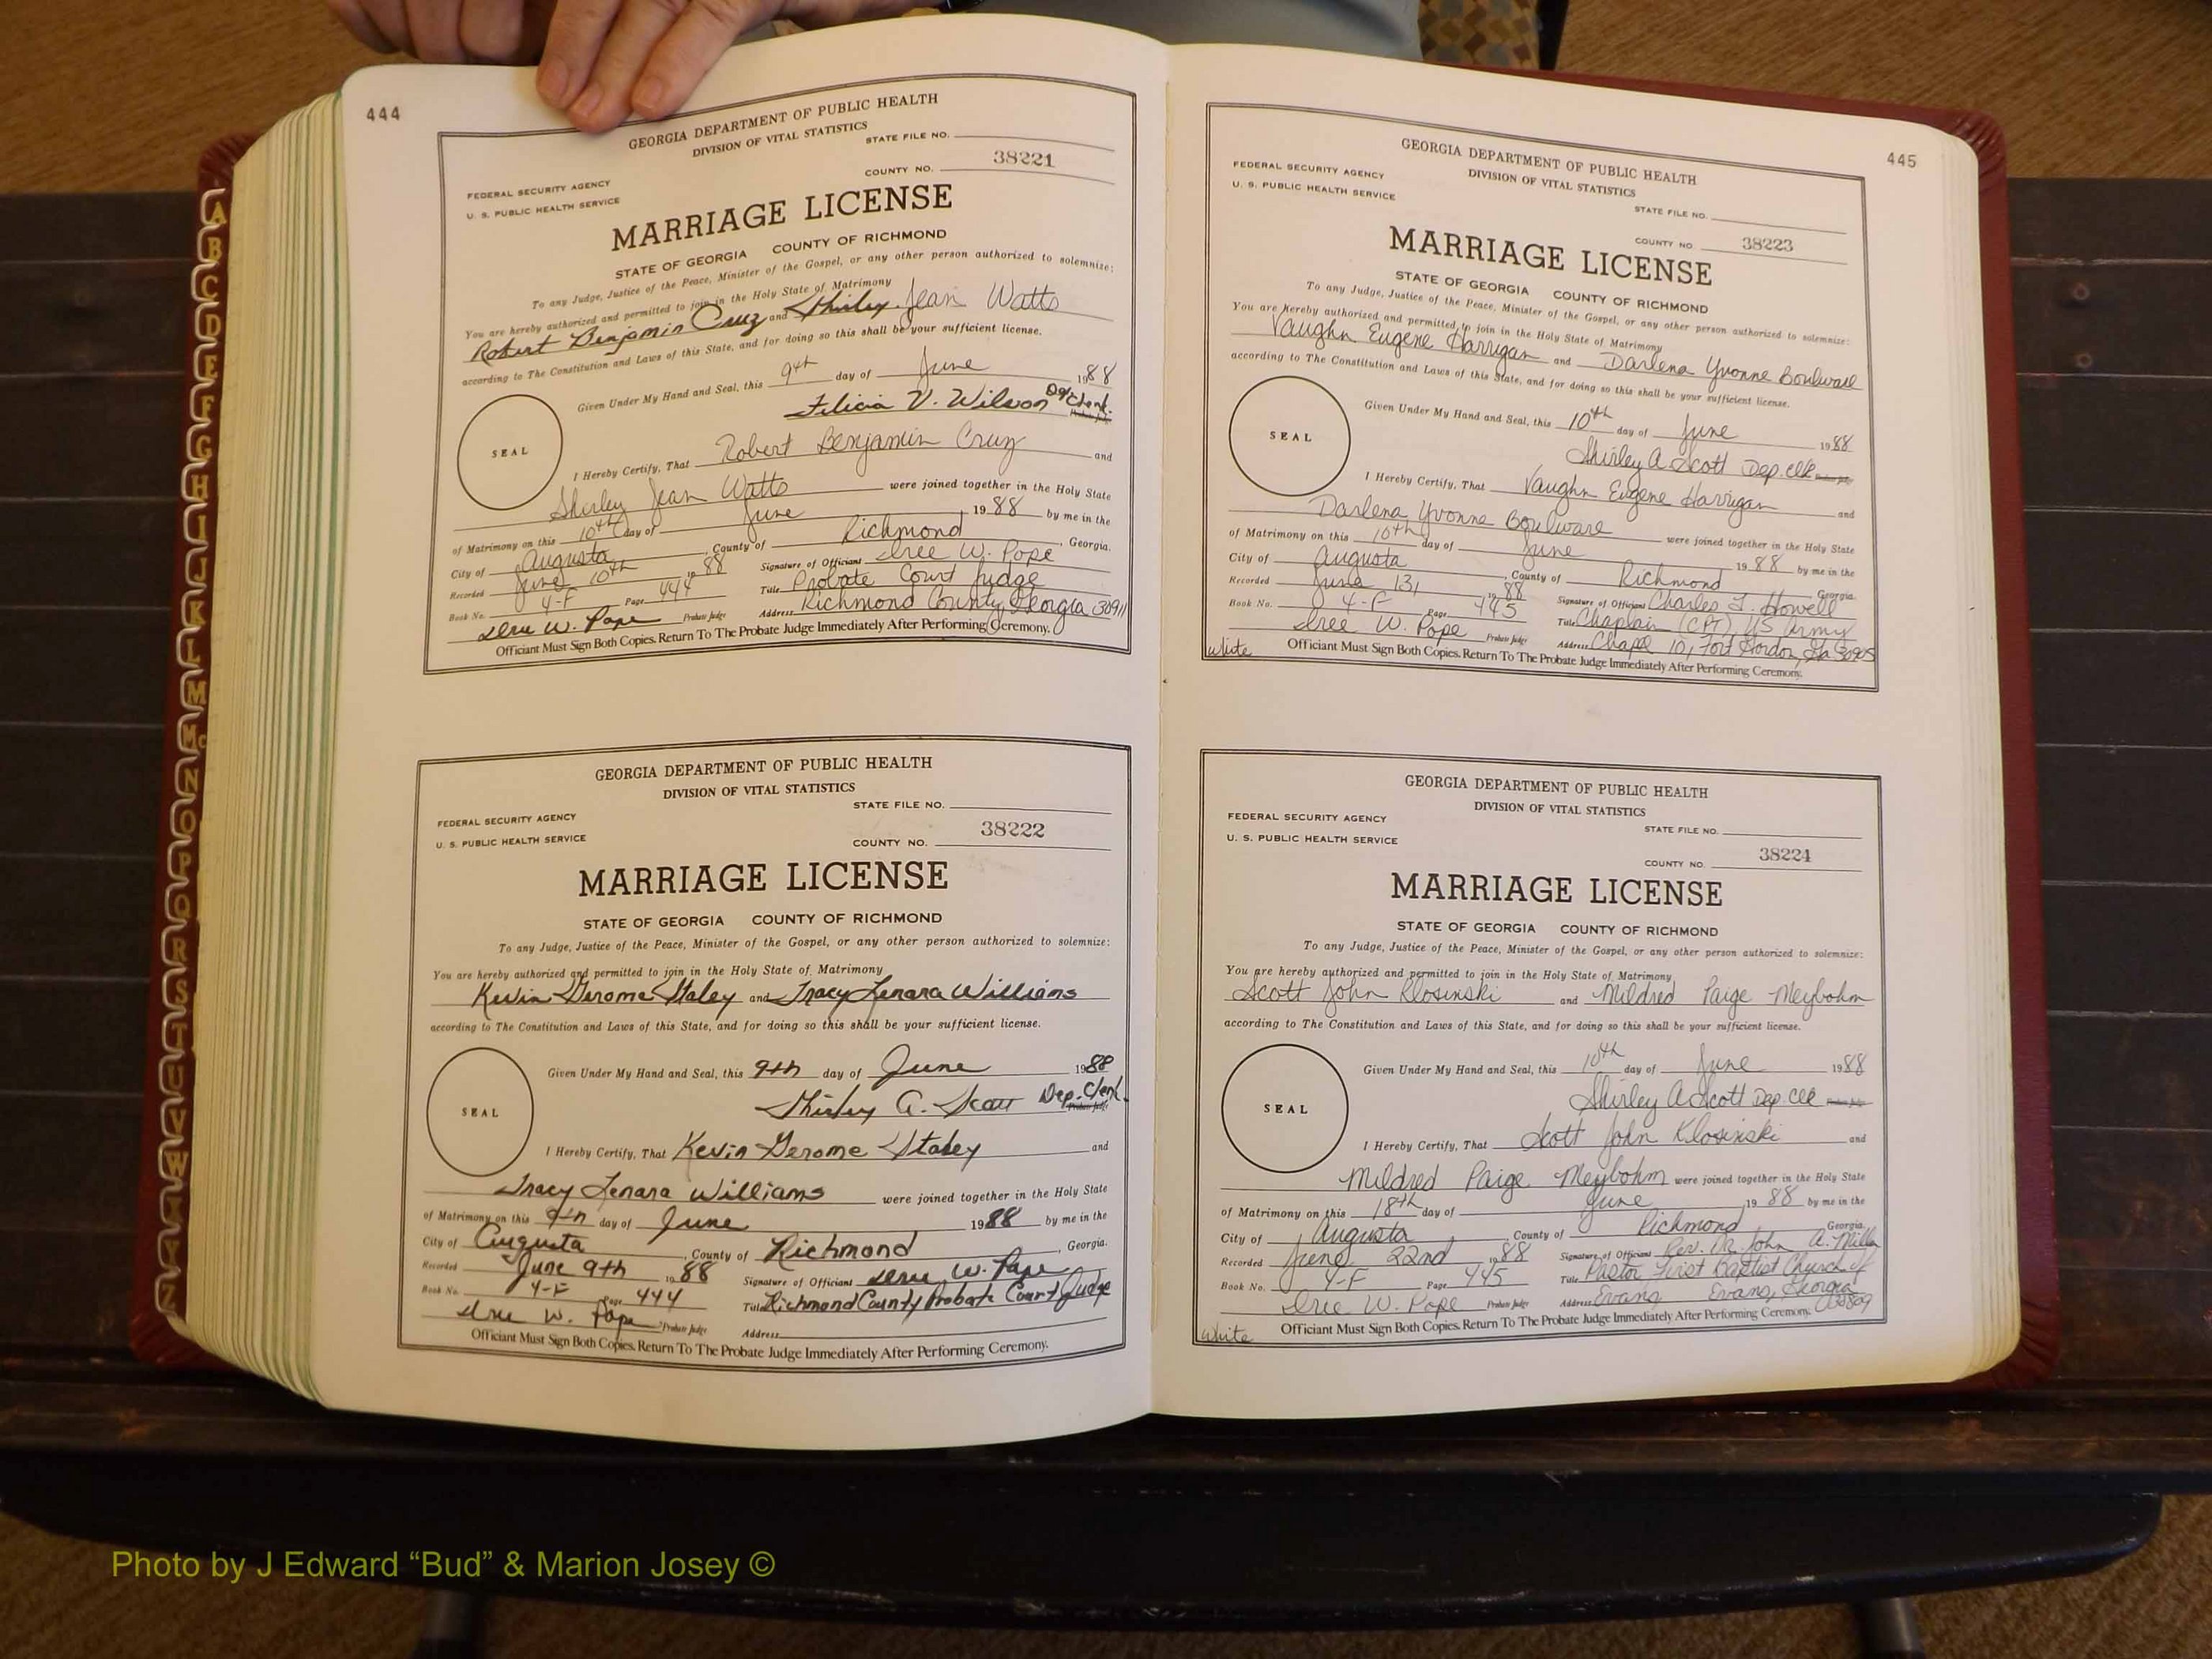 444
GEORGIA DEPARTMENT OF PUBLIC HEALTH
DIVISION OF VITAL STATISTICS
STATE FILE NO.
38221
COUNTY NO.
FEDERAL SECURITY AGENCY
U. S. PUBLIC HEALTH SERVICE
MARRIAGE LICENSE
STATE OF GEORGIA COUNTY OF RICHMOND
To any Judge, Justice of the Peace, Minister of the Gospel, or any other person authorized to solemnize:
You are hereby authorized and permitted to join in the Holy State of Matrimony
Robert Benjamin Cruz and Shirley Jean Watts
according to The Constitution and Laws of this State, and for doing so this shall be your sufficient license.
Given Under My Hand and Seal, this 9th day of June 1988
Felicia V. Wilson Dep. Clerk. Probate Judge
SEAL
I Hereby Certify, That Robert Benjamin Cruz and
Shirley Jean Watts were joined together in the Holy State
of Matrimony on this 10th day of June 1988 by me in the
City of Augusta, County of Richmond, Georgia.
Recorded June 10th 1988 Signature of Officiant Isree W. Pope
Book No. 4-F Page 444 Title Probate Court Judge
Isree W. Pope Probate Judge Address Richmond County, Georgia 30911
Officiant Must Sign Both Copies. Return To The Probate Judge Immediately After Performing Ceremony.
GEORGIA DEPARTMENT OF PUBLIC HEALTH
DIVISION OF VITAL STATISTICS
STATE FILE NO.
FEDERAL SECURITY AGENCY
38222
U. S. PUBLIC HEALTH SERVICE
COUNTY NO.
MARRIAGE LICENSE
STATE OF GEORGIA COUNTY OF RICHMOND
To any Judge, Justice of the Peace, Minister of the Gospel, or any other person authorized to solemnize:
You are hereby authorized and permitted to join in the Holy State of Matrimony
Kevin Gerome Staley and Tracy Lenara Williams
according to The Constitution and Laws of this State, and for doing so this shall be your sufficient license.
Given Under My Hand and Seal, this 9th day of June 1988
Shirley A. Scott Dep. Clerk. Probate Judge
SEAL
I Hereby Certify, That Kevin Gerome Staley and
Tracy Lenara Williams were joined together in the Holy State
of Matrimony on this 9th day of June 1988 by me in the
City of Augusta, County of Richmond, Georgia.
Recorded June 9th 1988 Signature of Officiant Isree W. Pope
Book No. 4-F Page 444 Title Richmond County Probate Court Judge
Isree W. Pope Probate Judge Address
Officiant Must Sign Both Copies. Return To The Probate Judge Immediately After Performing Ceremony.
445
GEORGIA DEPARTMENT OF PUBLIC HEALTH
DIVISION OF VITAL STATISTICS
FEDERAL SECURITY AGENCY
U. S. PUBLIC HEALTH SERVICE
STATE FILE NO.
COUNTY NO. 38223
MARRIAGE LICENSE
STATE OF GEORGIA COUNTY OF RICHMOND
To any Judge, Justice of the Peace, Minister of the Gospel, or any other person authorized to solemnize:
You are hereby authorized and permitted to join in the Holy State of Matrimony
Vaughn Eugene Harrigan and Darlena Yvonne Boulware
according to The Constitution and Laws of this State, and for doing so this shall be your sufficient license.
Given Under My Hand and Seal, this 10th day of June 1988
Shirley A Scott Dep. Clk Probate Judge
SEAL
I Hereby Certify, That Vaughn Eugene Harrigan and
Darlena Yvonne Boulware were joined together in the Holy State
of Matrimony on this 10th day of June 1988 by me in the
City of Augusta, County of Richmond Georgia.
Recorded June 13, 1988 Signature of Officiant Charles L. Howell
Book No. 4-F Page 445 Title Chaplain (CPT) US Army
Isree W. Pope Probate Judge Address Chapel 10, Fort Gordon, Ga 30905
White Officiant Must Sign Both Copies. Return To The Probate Judge Immediately After Performing Ceremony.
GEORGIA DEPARTMENT OF PUBLIC HEALTH
DIVISION OF VITAL STATISTICS
FEDERAL SECURITY AGENCY
STATE FILE NO.
U. S. PUBLIC HEALTH SERVICE
COUNTY NO. 38224
MARRIAGE LICENSE
STATE OF GEORGIA COUNTY OF RICHMOND
To any Judge, Justice of the Peace, Minister of the Gospel, or any other person authorized to solemnize:
You are hereby authorized and permitted to join in the Holy State of Matrimony
Scott John Klosinski and Mildred Paige Meybohm
according to The Constitution and Laws of this State, and for doing so this shall be your sufficient license.
Given Under My Hand and Seal, this 10th day of June 1988
Shirley A Scott Dep Clk Probate Judge
SEAL
I Hereby Certify, That Scott John Klosinski and
Mildred Paige Meybohm were joined together in the Holy State
of Matrimony on this 18th day of June 1988 by me in the
City of Augusta, County of Richmond Georgia.
Recorded June 22nd 1988 Signature of Officiant Rev. Dr. John A. Miller
Book No. 4-F Page 445 Title Pastor First Baptist Church of
Isree W. Pope Probate Judge Address Evans Evans, Georgia 30809
White Officiant Must Sign Both Copies. Return To The Probate Judge Immediately After Performing Ceremony.
A
B
C
D
E
F
G
H
I
J
K
L
M
Mc
N
O
P
Q
R
S
T
U
V
W
X
Y
Z
Photo by J Edward “Bud” & Marion Josey ©